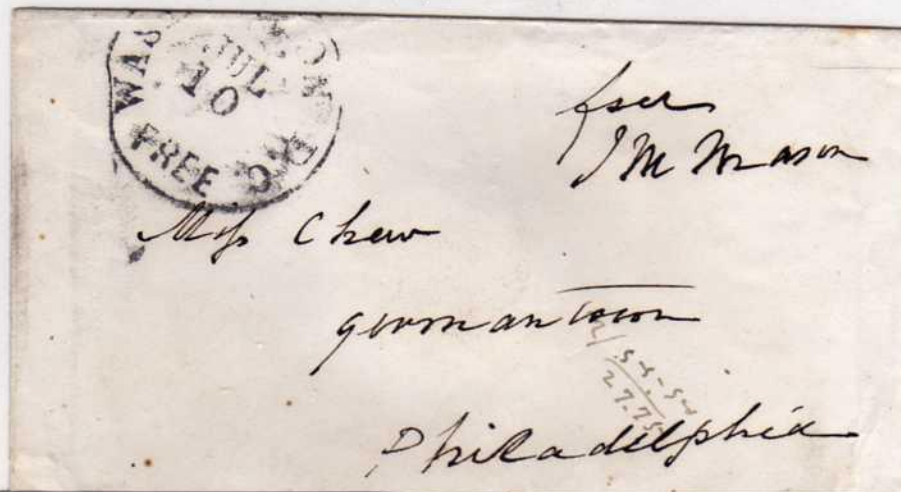 WASHINGTON D.C.
JUL
10
FREE
free
J M Mason
Miss Chew
Germantown
2/ 55.50
27.75
Philadelphia